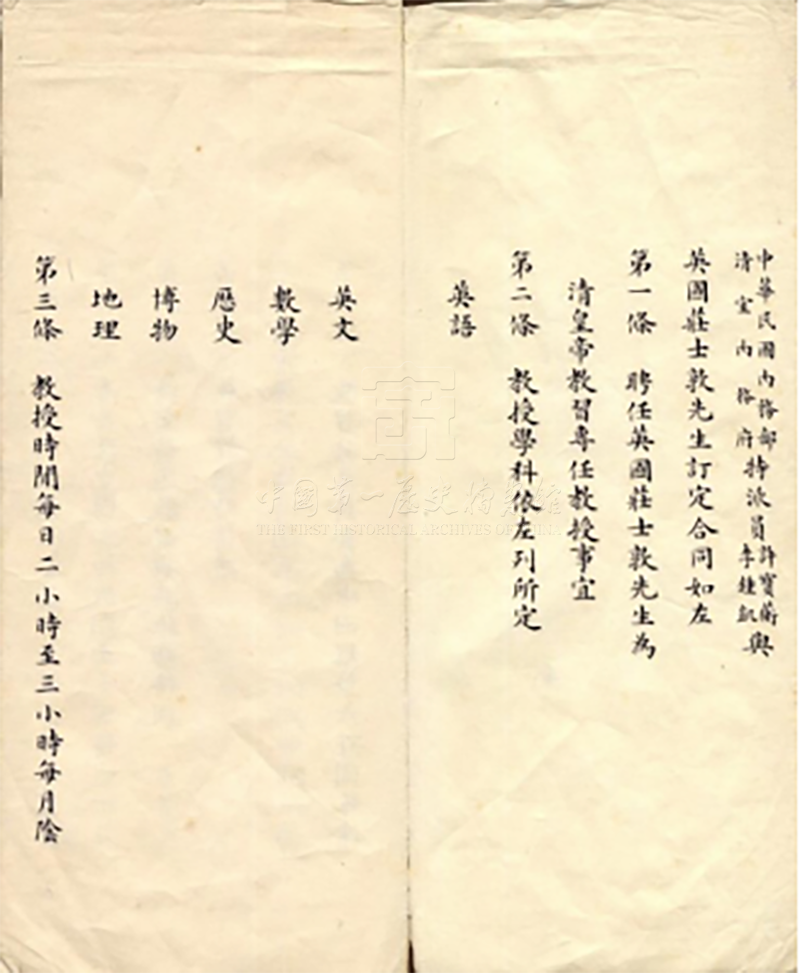 中華民國內務部
清室內務府
特派員
許寶蘅
李鍾凱
與
英國莊士敦先生訂定合同如左
第一條 聘任英國莊士敦先生為
清皇帝教習專任教授事宜
第二條 教授學科依左列所定
英語
英文
數學
歷史
博物
地理
第三條 教授時間每日二小時至三小時每月陰
中國第一歷史檔案館
THE FIRST HISTORICAL ARCHIVES OF CHINA